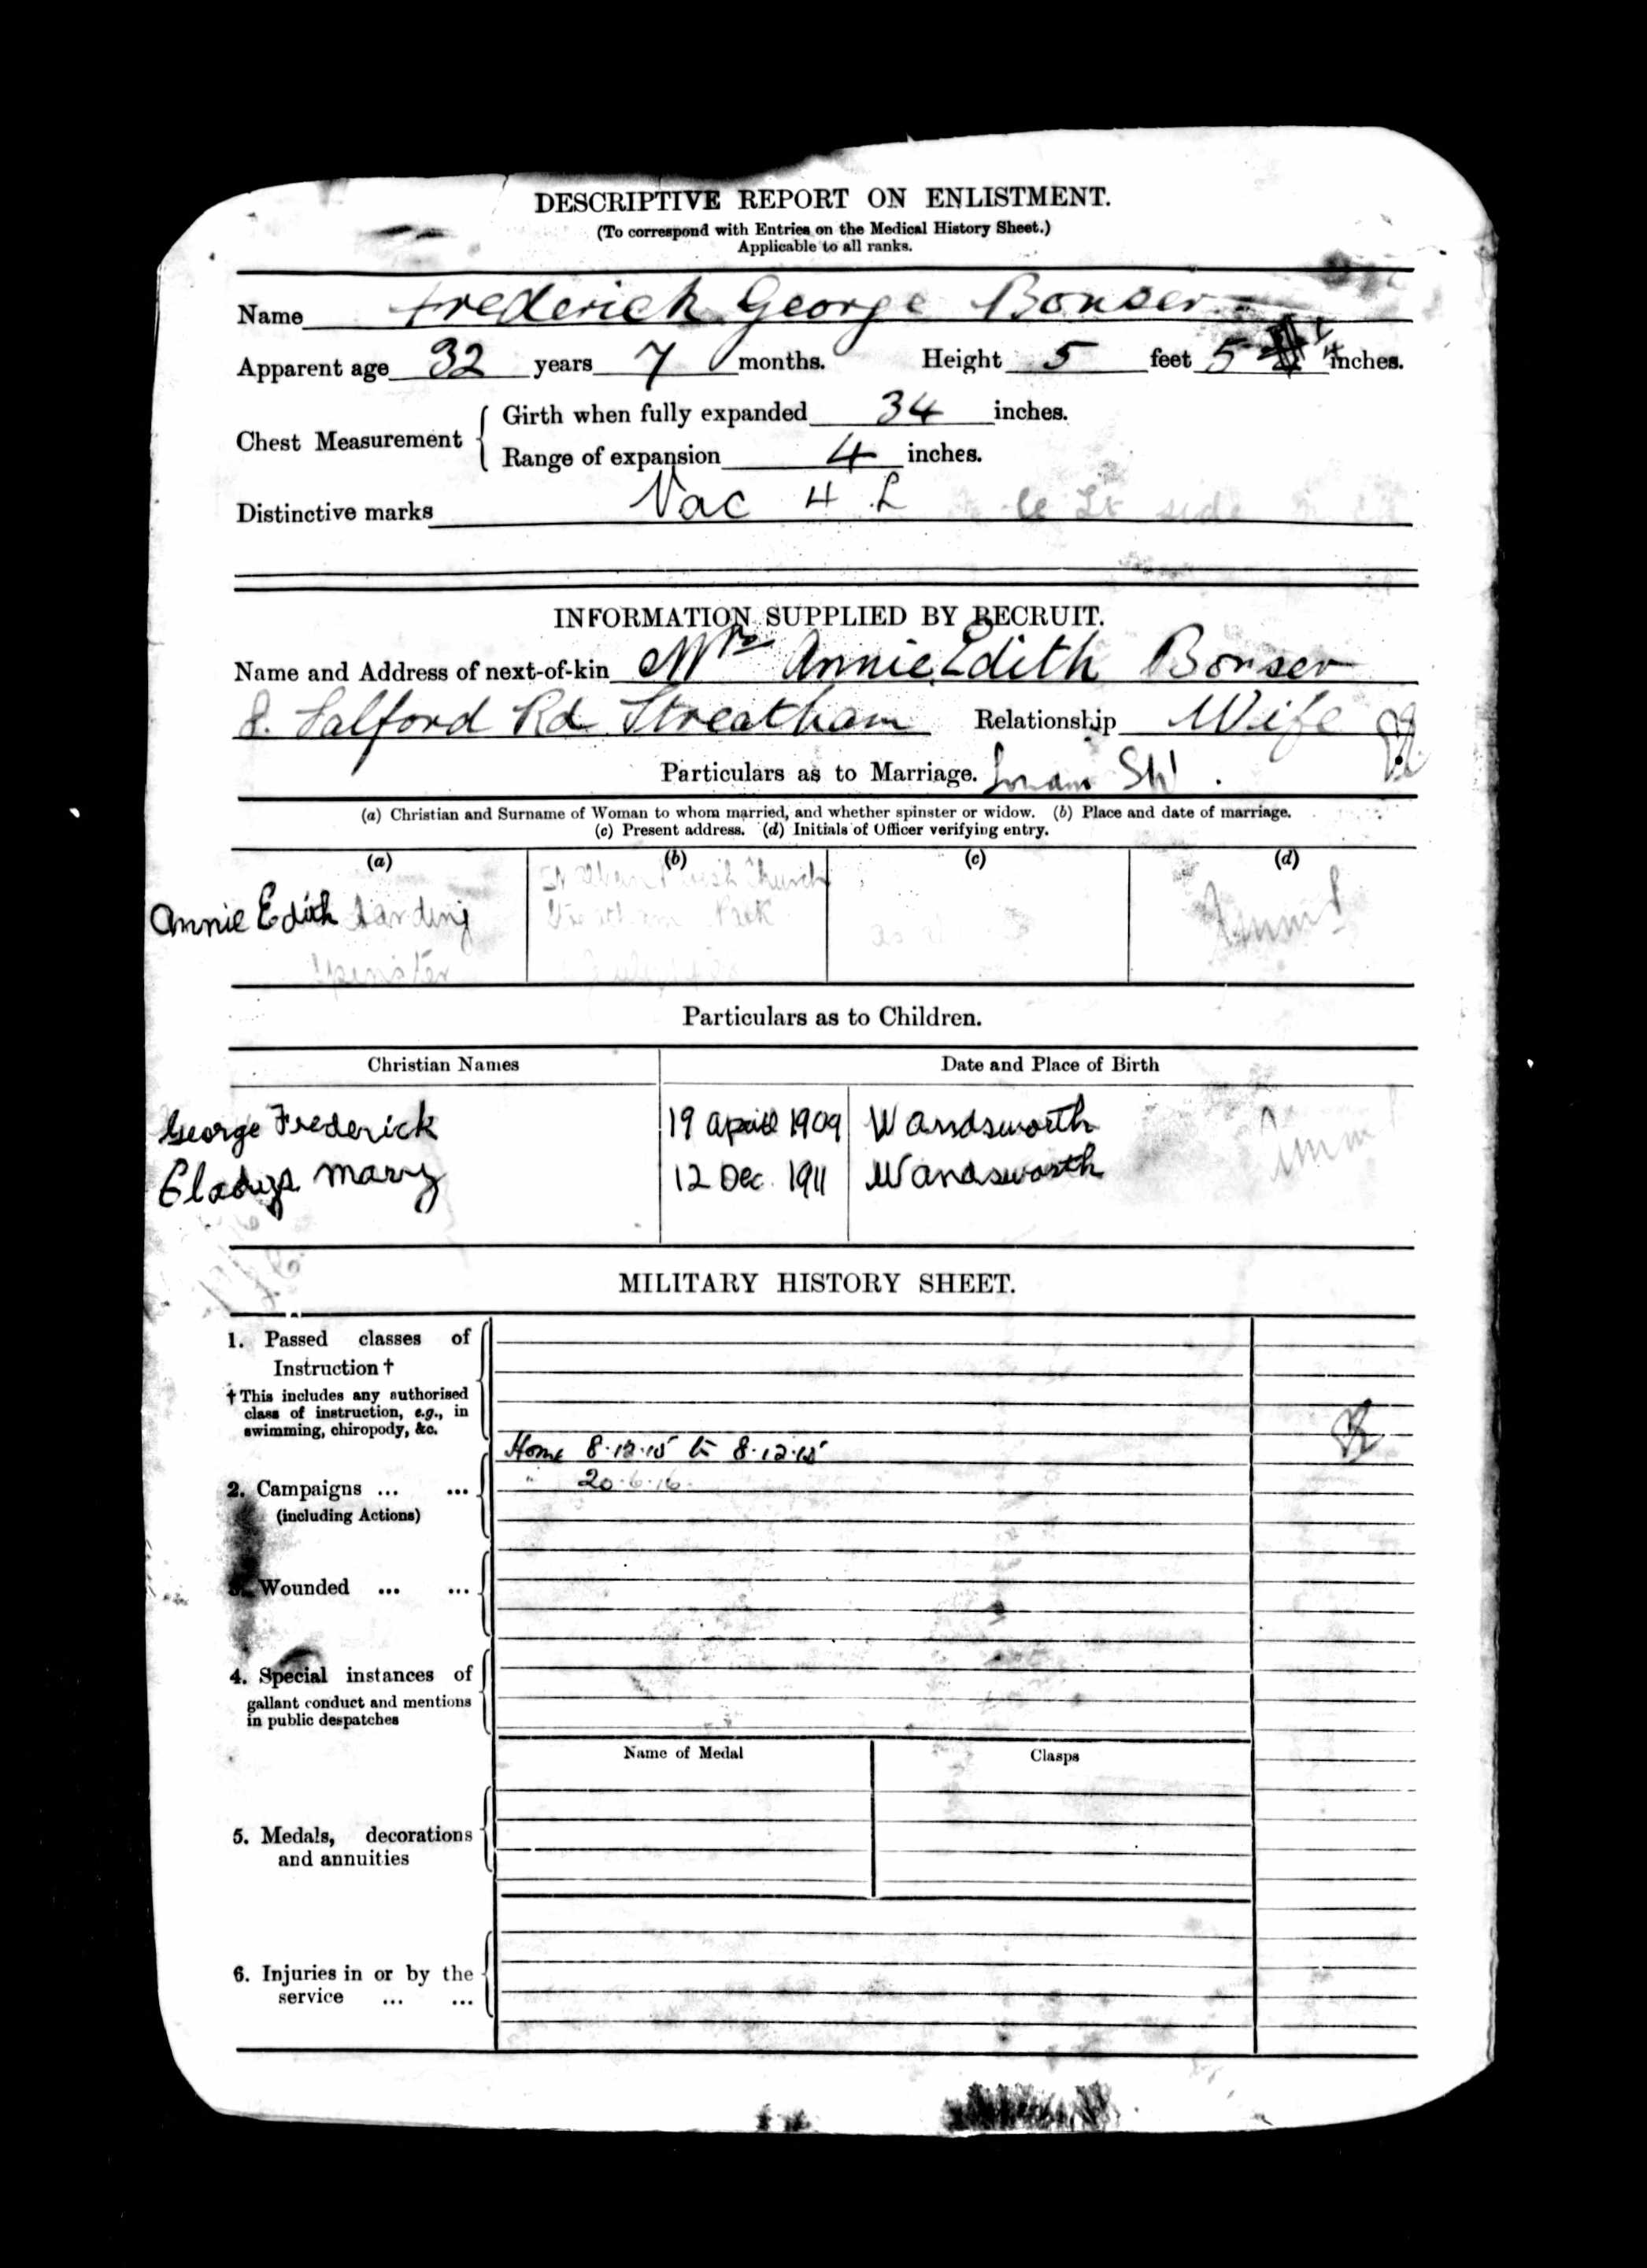 DESCRIPTIVE REPORT ON ENLISTMENT.
(To correspond with Entries on the Medical History Sheet.)
Applicable to all ranks.
Name Frederick George Bonser
Apparent age 32 years 7 months. Height 5 feet 5 inches.
Chest Measurement
Girth when fully expanded 34 inches.
Range of expansion 4 inches.
Distinctive marks Vac 4 L Lt side
INFORMATION SUPPLIED BY RECRUIT.
Name and Address of next-of-kin Mrs Annie Edith Bonser
8. Salford Rd Streatham Relationship Wife
Particulars as to Marriage. SW
(a) Christian and Surname of Woman to whom married, and whether spinster or widow. (b) Place and date of marriage.
(c) Present address. (d) Initials of Officer verifying entry.
(a) (b) (c) (d)
Church
Annie Edith Harding
Spinster
Particulars as to Children.
Christian Names Date and Place of Birth
George Frederick 19 April 1909 Wandsworth
Gladys Mary 12 Dec. 1911 Wandsworth
MILITARY HISTORY SHEET.
1. Passed classes of
Instruction †
† This includes any authorised
class of instruction, e.g., in
swimming, chiropody, &c.
Home 8.12.15 to 8.12.15
" 20.6.16
2. Campaigns ... ...
(including Actions)
3. Wounded ... ...
4. Special instances of
gallant conduct and mentions
in public despatches
Name of Medal Clasps
5. Medals, decorations
and annuities
6. Injuries in or by the
service ... ...